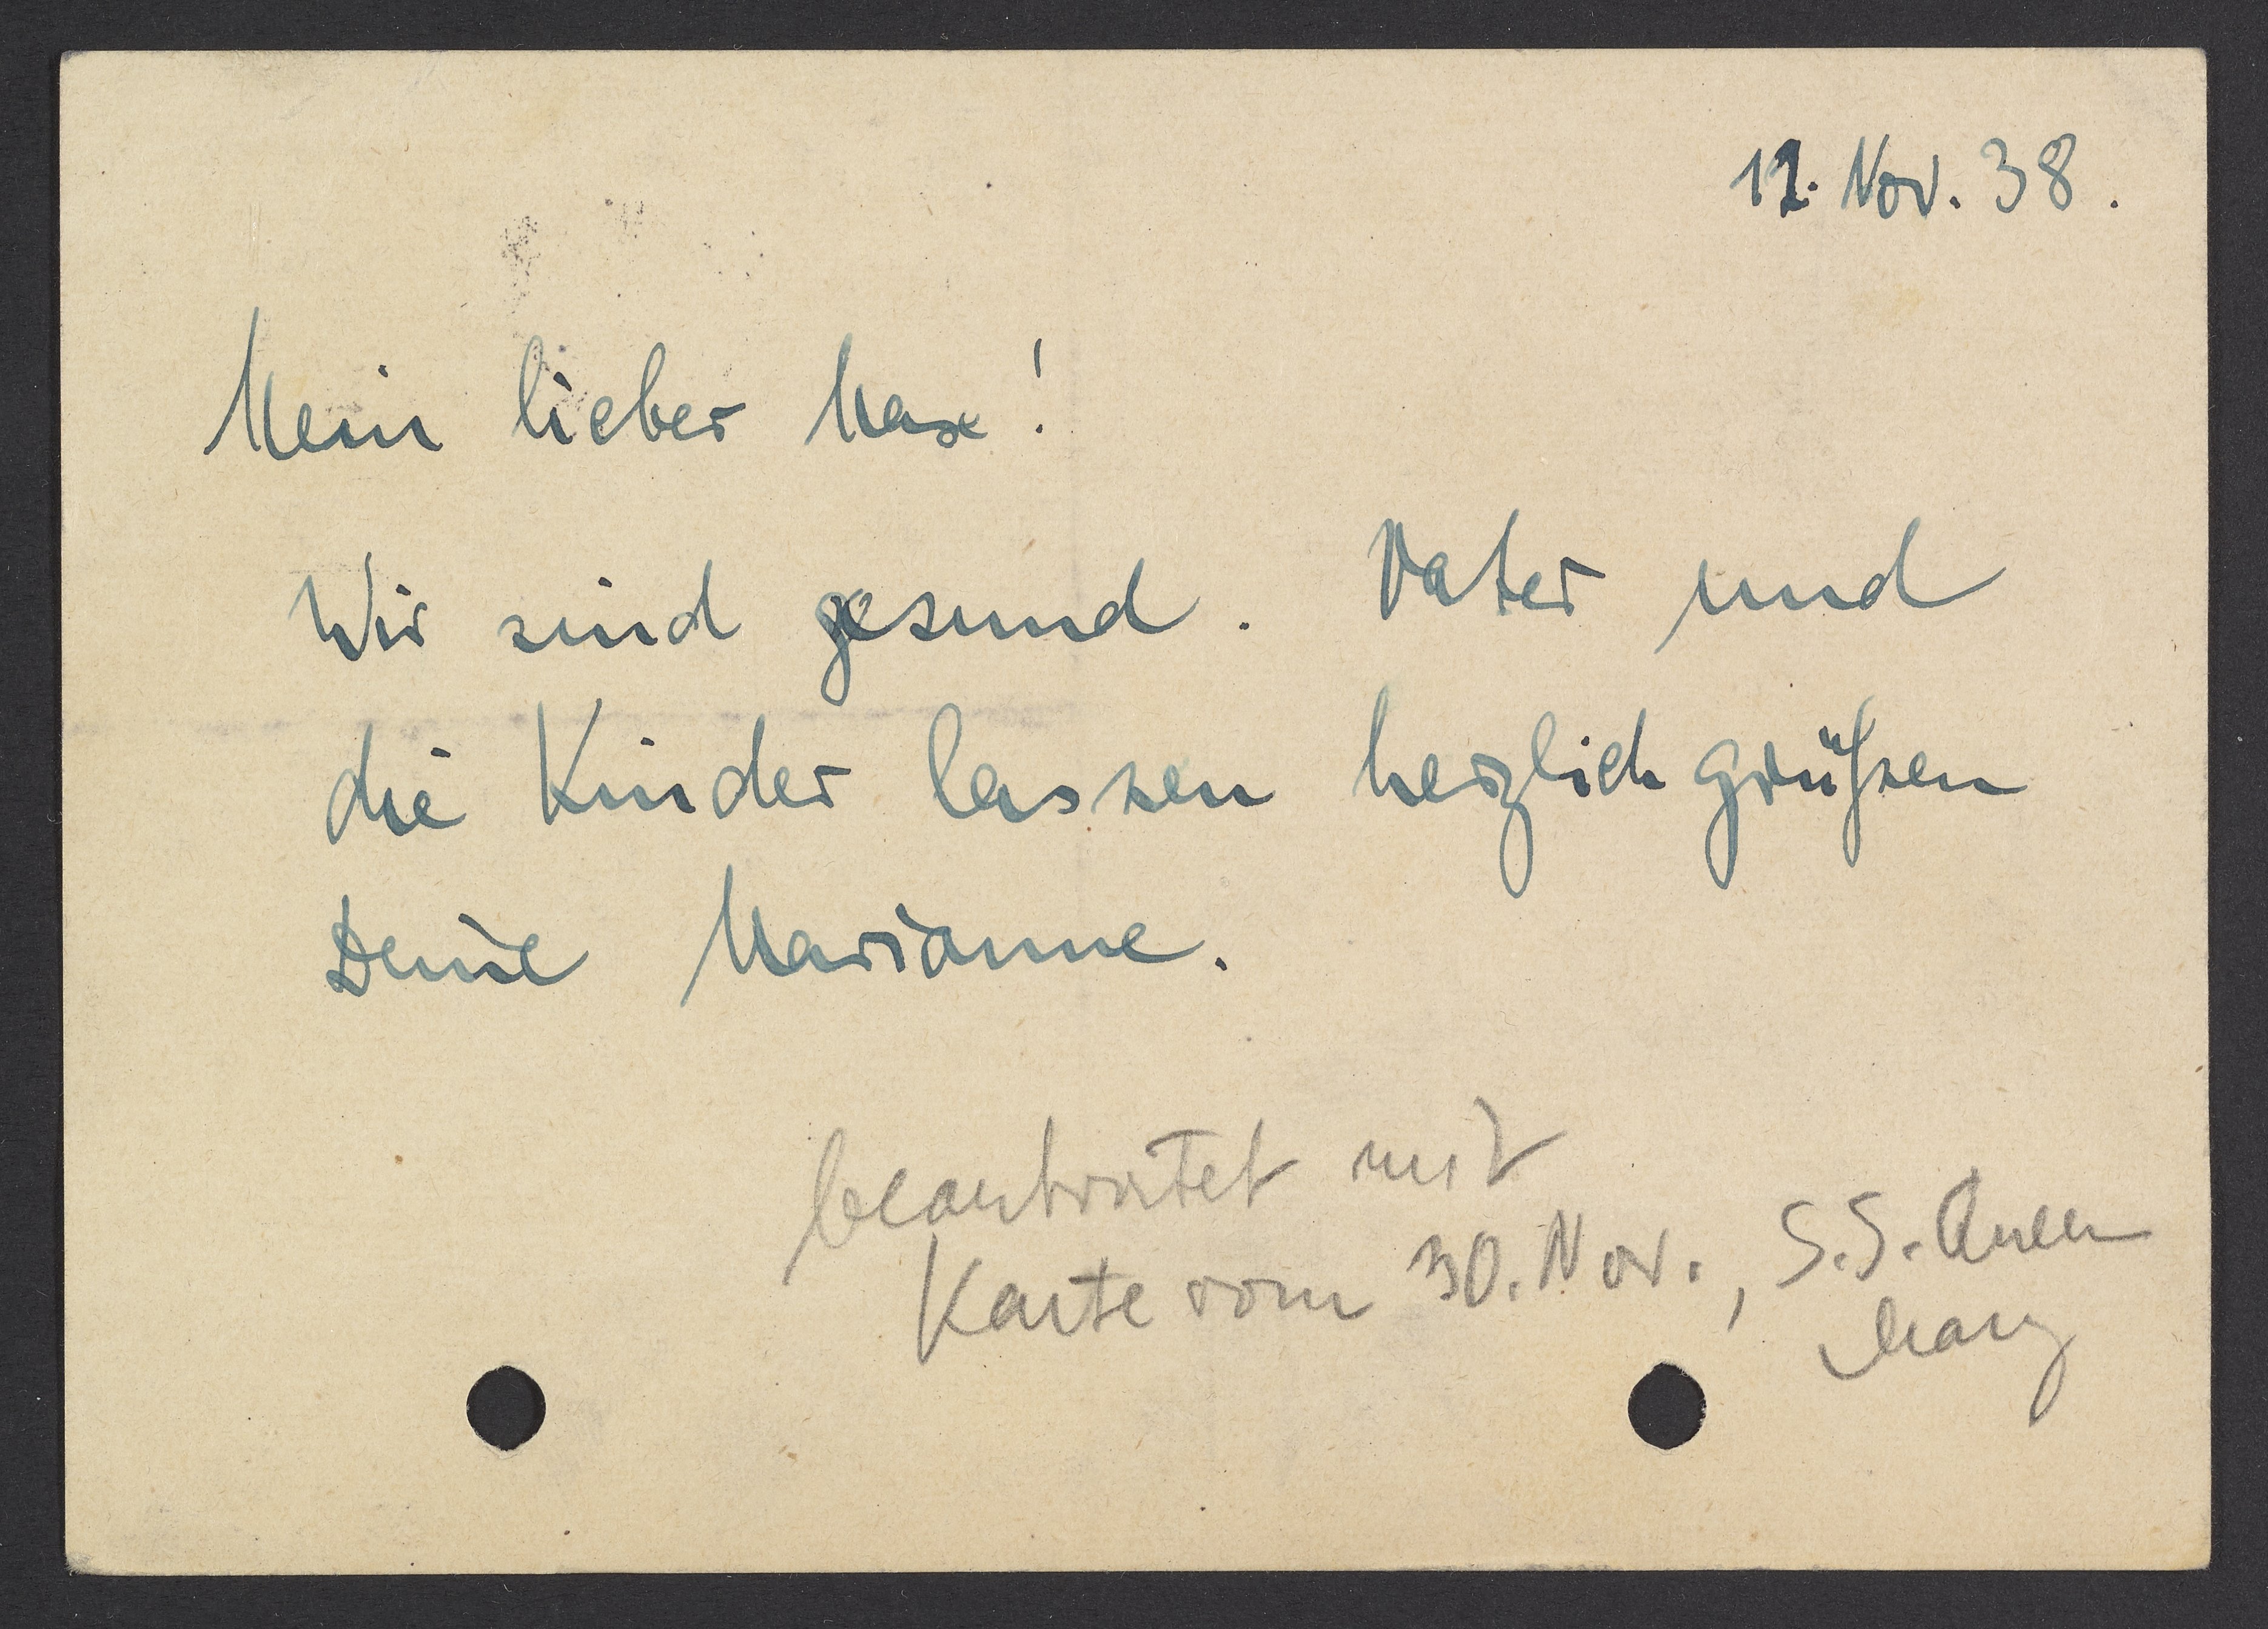 12. Nov. 38.
Mein lieber Max!
Wir sind gesund. Vater und
die Kinder lassen herzlich grüßen
Deine Marianne.
beantwortet mit
Karte vom 30. Nov., S.S. Queen
Mary